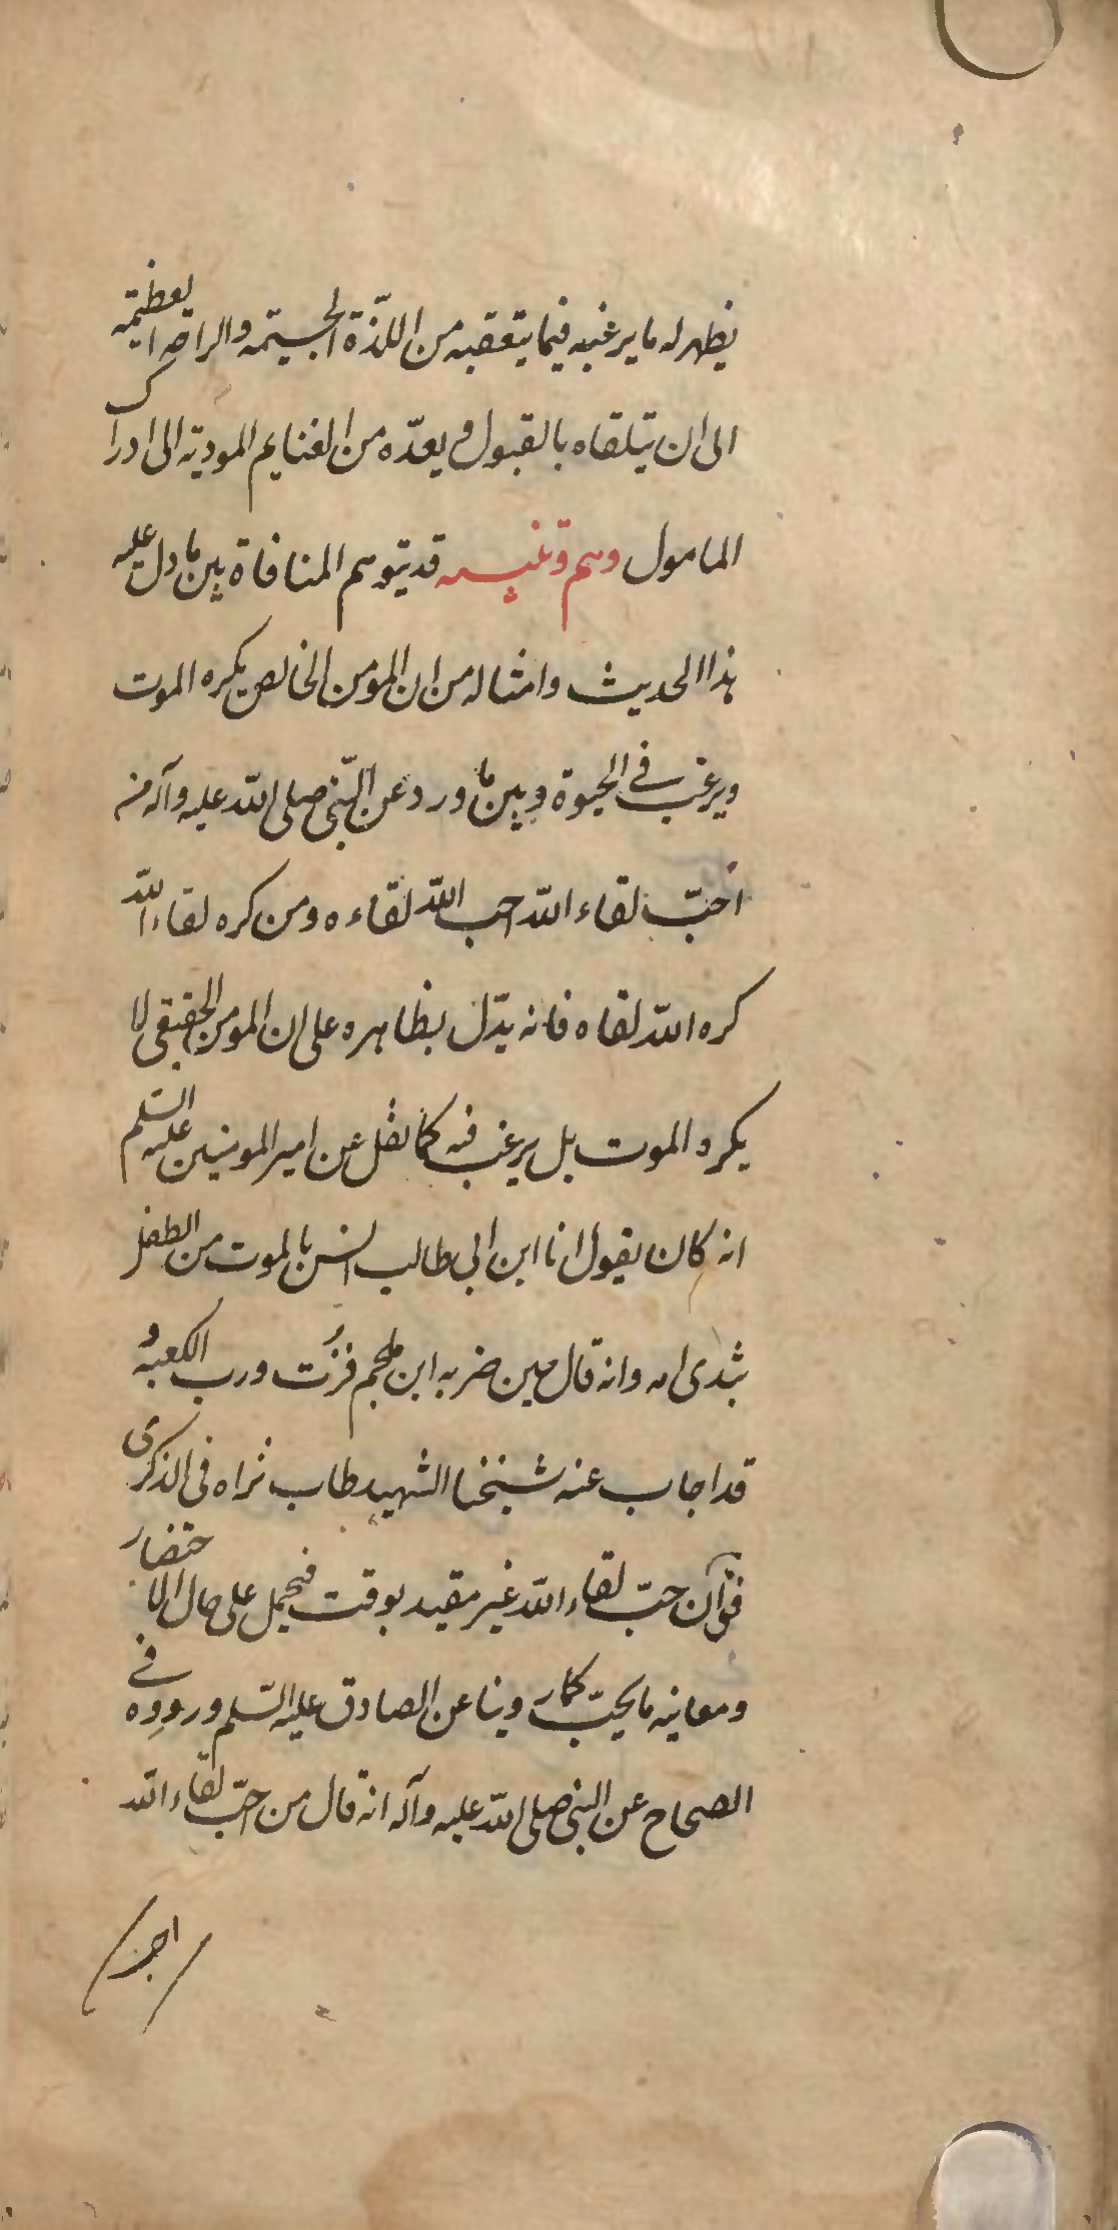 يظهر له ما يرغبه فيما يتعقبه من اللذّة الجسيمه والراحه العظيمه
الى ان يتلقاه بالقبول و يعدّه من الغنايم الموديه الى ادراك
المامول وهم وتنبيه قد يتوهم المنافاة بين ما دل عليه
هذا الحديث وامثاله من ان المومن الخالص يكره الموت
ويرغب في الحيوة وبين ما ورد عن النّبي صلى اللّه عليه وآله من
احبّ لقاء اللّه احب اللّه لقاءه ومن كره لقاء اللّه
كره اللّه لقاه فانه يدّل بظاهره على ان المومن الحقيقي لا
يكره الموت بل يرغب فيه كما نقل عن امير المومنين عليه السّلم
انه كان يقول ان ابن ابي طالب انس بالموت من الطفل
بثدى امه وانه قال حين ضربه ابن ملجم فزت ورب الكعبه و
قد اجاب عنه شيخنا الشهيد طاب ثراه في الذكرى
فق ان حبّ لقاء اللّه غير مقيد بوقت فيحمل على حال الاحتضار
ومعاينه ما يحبّ كما روينا عن الصادق عليه السّلم ورووه في
الصحاح عن النبي صلى اللّه عليه وآله انه قال من احبّ لقاء اللّه